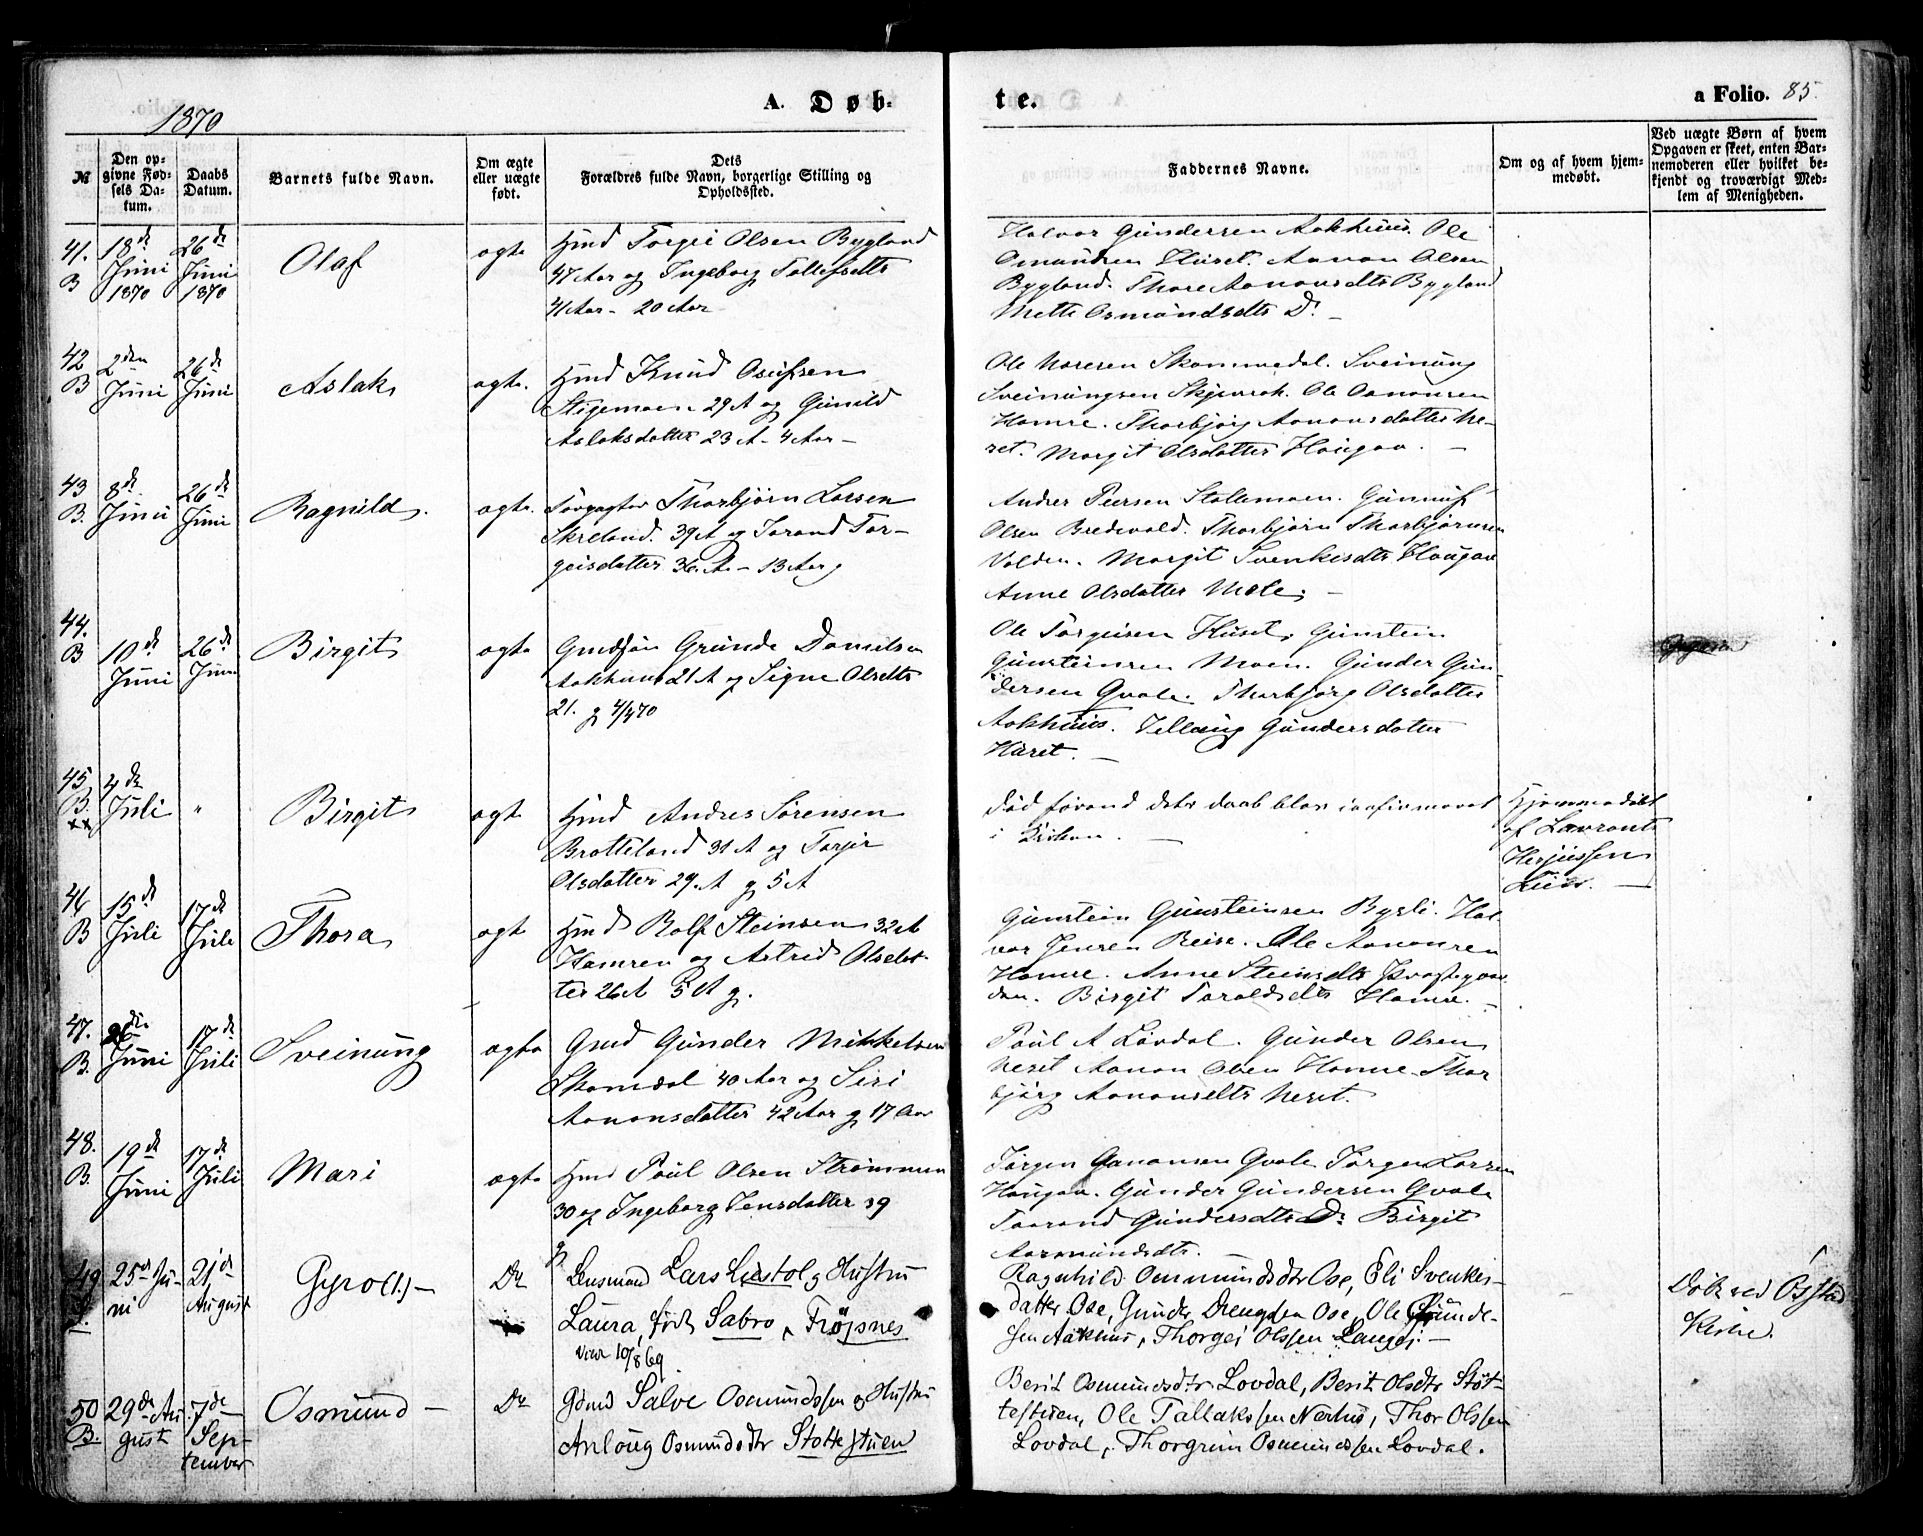 1870
A. Døb-
te.
a Folio. 85.
№
Den op-
givne Fød-
sels Da-
tum.
Daabs
Datum.
Barnets fulde Navn.
Om ægte
eller uægte
født.
Dets
Forældres fulde Navn, borgerlige Stilling og
Opholdssted.
Faddernes Navne.
Om og af hvem hjem-
medøbt.
Ved uægte Børn af hvem
Opgaven er skeet, enten Bar-
nemoderen eller hvilket be-
kjendt og troværdigt Med-
lem af Menigheden.
41.
B
18de
Juni
1870
26de
Juni
1870
Olaf
ægte
Torgei Olsen Bygland
47 Aar og Ingeborg Tallefsdtr
41 Aar - 20 Aar
Halvor Gundersen Aakhuus. Ole
Osmundsen Huset. Aanon Olsen
Bygland. Thore Aanonsdtr Bygland
Mette Osmundsdtr Do. -
42
B
2den
Juni
26de
Juni
Aslak
ægte.
Knud Osufsen
Stigemoen 29 A og Gunild
Aslaksdatter 23 A - 4 Aar -
Ole Skommedal. Sveinung
Sveinungsen. Ole Aanonsen
Homre. Thorbjørg Aanonsdatter Ne-
set. Margit Olsdatter Haugaa. -
43
B.
8de
Juni
26de
Juni
Ragnild.
ægte.
Thorbjørn Larsen
Skreland. 39 A og Torand Tor-
geisdatter 36 A - 13 Aar
Andres Peersen Stolemoen. Gunnuf
Olsen Bredevold. Thorbjørn Thorbjørnsen
Volden. Margit Svenkesdtr Haugaa
Anne Olsdatter Mole. -
44.
B
10de
Juni
26de
Juni
Birgit
ægte
Grunde Danielsen
Aakhuus 21 A og Signe Olsdtr
21.
Ole Torgeisen Huset, Gunstein
Gunsteinsen Moen. Gunder Gun-
dersen Qvale. Thorbjørg Olsdatter
Aakhuus. Gundersdatter
Huset. -
45
B.
xx
4de
Juli
"
Birgit
ægte
Andres Sørensen
Brotteland 31 A og Torjer
Olsdatter 29 A g 5 A
Død førend dets daab blev
i Kirken. -
Hjemmedøbt
af Lavrants
Herjussen
46
B
15de
Juli
17de
Juli
Thora
ægte
Rolf Steinsen 32 A
Hamren og Astrid Olsdat-
ter 26 A 5 A g.
Gunstein Gunsteinsen Bygli. Hal-
vor Jensen Reise. Ole Aanonsen
Homre. Anne Steinsdtr
Birgit Taraldsdtr Homre. -
47.
B.
Juni
17de
Juli
Sveinung
ægte
Gunder Mikkelsen
Skomedal 40 Aar og Siri
Aanonsdatter 42 Aar g 17 Aar
Paul A Løvdal. Gunder Olsen
Neset Aanon Olsen Homme. Thor
bjørg Aanonsdtr Neset.
48.
B.
19de
Juni
17de
Juli
Mari
ægte
Paul Olsen Strømmen
30 og Ingeborg Jensdatter 39
Jørgen Aanonsen Qvale Jørgen Larsen
Haugaa. Gunder Gundersen Qvale
Taarand Gundersdtr Do Birgit
Aasmundsdtr. -
49
25de Ju-
ni
21de
August
Gyro (1.) -
Do
Lensmand Lars Liestøl og Hustru
Laura, født Sabro, Frøysnes
Viet 10/8 69.
Ragnhild Osmundsdtr Ose, Eli Svenkes-
datter Ose, Gunder Drengsen Ose, Ole Gunde-
sen Aakhus, Thorgei Olssen Langei. -
Døbt ved Østad
Kirke.
50
B.
29de Au
gust
7de
Sep-
tember
Osmund -
Do
Salve Osmundssen og Hustru
Anloug Osmundsdtr Støttestuen
Berit Osmundsdtr Lovdal, Berit Olsdtr Støt-
testuen, Ole Tallakssen Nerhus, Thor Olssen
Lovdal, Thorgrim Osmundssen Lovdal.